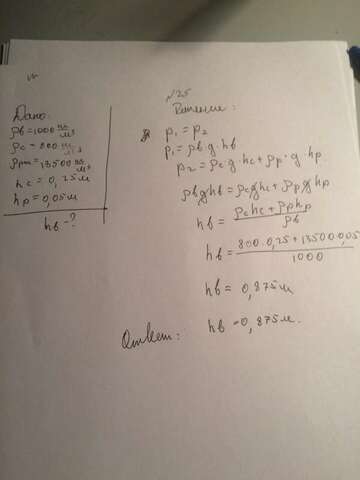 №25
Дано:
ρв=1000 кг/м³
ρс=800 кг/м³
ρрт=13500 кг/м³
hс=0,25м
hр=0,05м
hв-?
Решение:
p₁=p₂
p₁=ρв g hв
p₂=ρс g hс+ρр·g hр
ρвghв=ρсghс+ρрghр
hв=(ρсhс+ρрhр)/ρв
hв=(800·0,25+13500·0,05)/1000
hв=0,875м
Ответ: hв=0,875м.